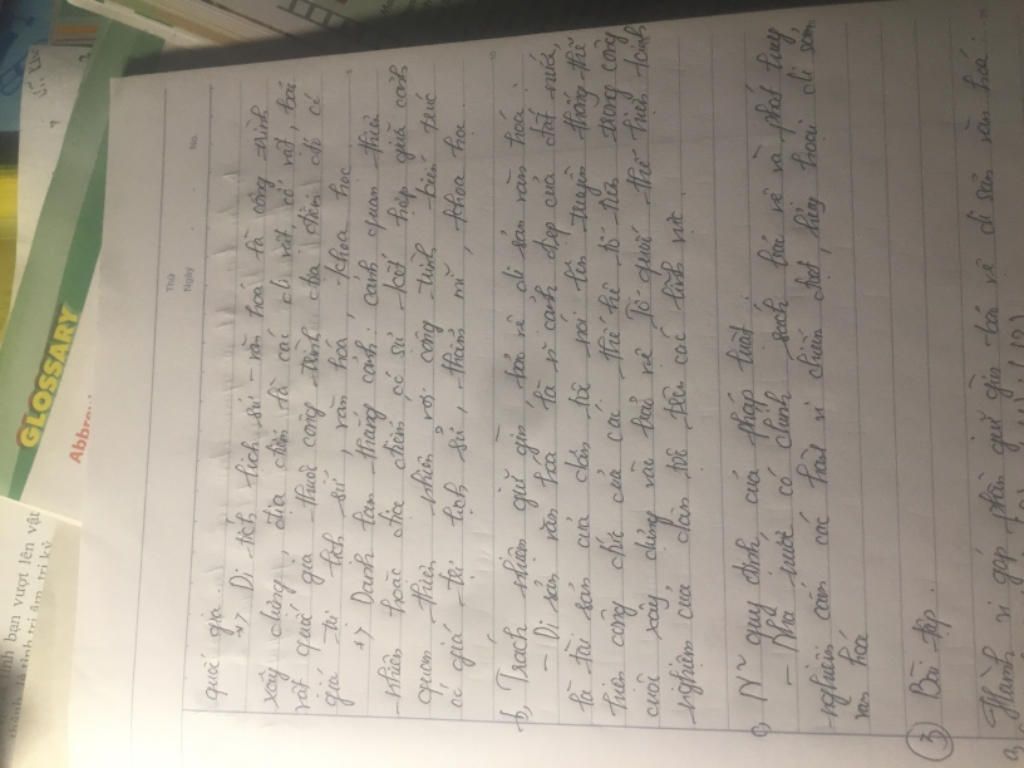 GLOSSARY
Abbrev
nh bạn vượt lên vật
Thứ
Ngày
No.
quốc gia.
+> Di tích lịch sử - văn hoá là công trình
xây dựng, địa điểm và các di vật, cổ vật, bảo
vật quốc gia thuộc công trình, địa điểm đó có
giá trị lịch sử, văn hóa, khoa học
+> Danh lam thắng cảnh: cảnh quan thiên
nhiên hoặc địa điểm có sự kết hợp giữa cảnh
quan thiên nhiên với công trình kiến trúc
có giá trị lịch sử, thẩm mĩ, khoa học
b, Trách nhiệm giữ gìn, bảo vệ di sản văn hoá
- Di sản văn hoá là cảnh đẹp của đất nước,
là tài sản của dân tộc nói lên truyền thống thể
hiện công đức của các thế hệ tổ tiên trong công
cuộc xây dựng và bảo vệ Tổ quốc thể hiện kinh
nghiệm của dân tộc trên các lĩnh vực
c, N~ quy định của pháp luật
- Nhà nước có chính sách bảo vệ và phát huy,
nghiêm cấm các hành vi chiếm đoạt, hủy hoại di sản
văn hóa
③ Bài tập.
Hành vi góp phần giữ gìn bảo vệ di sản văn hoá: